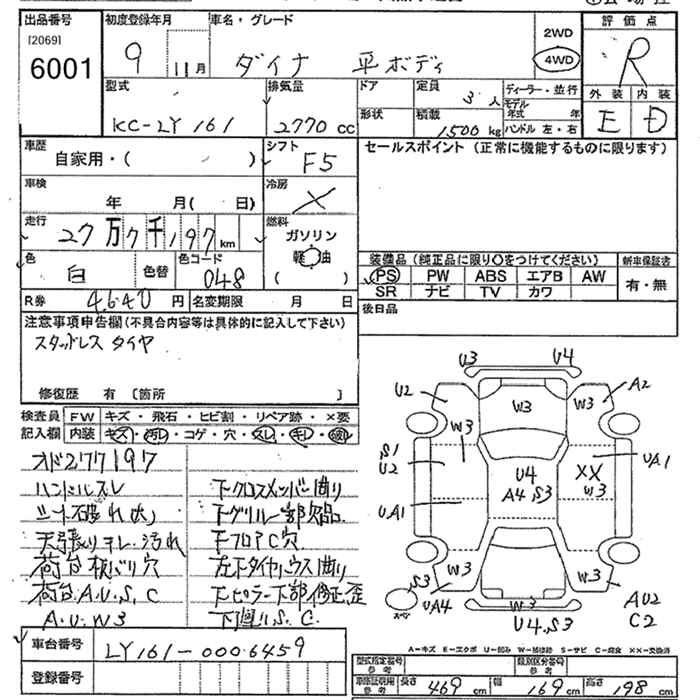 出品番号 初度登録年月 車名・グレード 評価点
[2069]
6001
9 11月 ダイナ 平ボディ
2WD
4WD
R
型式 排気量 ドア 定員 3人 ディーラー・並行
モデル
年式 年
外装 内装
KC-LY161 2770cc 形状 積載 1500kg ハンドル 左・右 E D
車歴 シフト セールスポイント(正常に機能するものに限ります)
自家用・( ) F5
車検 冷房
年 月( 日) ×
走行 燃料
27万7千197km ガソリン
軽油
( )
色 色替 色コード
白 048
装備品(純正品に限り○をつけてください) 新車保証書
PS PW ABS エアB AW 有・無
SR ナビ TV カワ
R券 4640円 名変期限 月 日 後日品
注意事項申告欄(不具合内容等は具体的に記入して下さい)
スタッドレスタイヤ
修復歴 有 [箇所 ]
検査員 FW キズ・飛石・ヒビ割・リペア跡・×要
記入欄 内装 キズ・汚れ・コゲ・穴・スレ・キレ・破れ
オド277197
ハンドルスレ 下クロスメンバー曲り
シート破れ大 下グリル部欠品
天張りキレ・汚れ 下フロアC穴
荷台板バリ穴 左下タイヤハウス曲り
荷台A.U.S.C 下ピラー下部修正歪
A.U.W3 下廻りS.C.
車台番号 LY161-0006459
登録番号
U3 U4
U2 W3 W3 W3 A2
S1
U2 W3 U4 XX UA1
A4 S3 W3
UA1
W3 W3
S3 UA4 W3 AU2
U4.S3 C2
A-キズ E-エクボ U-凹み W-補修跡 S-サビ C-腐食 XX-交換済
型式指定番号 類別区分番号
参考 参考
車庫証明用 長さ 469cm 幅 169cm 高さ 198cm
参考